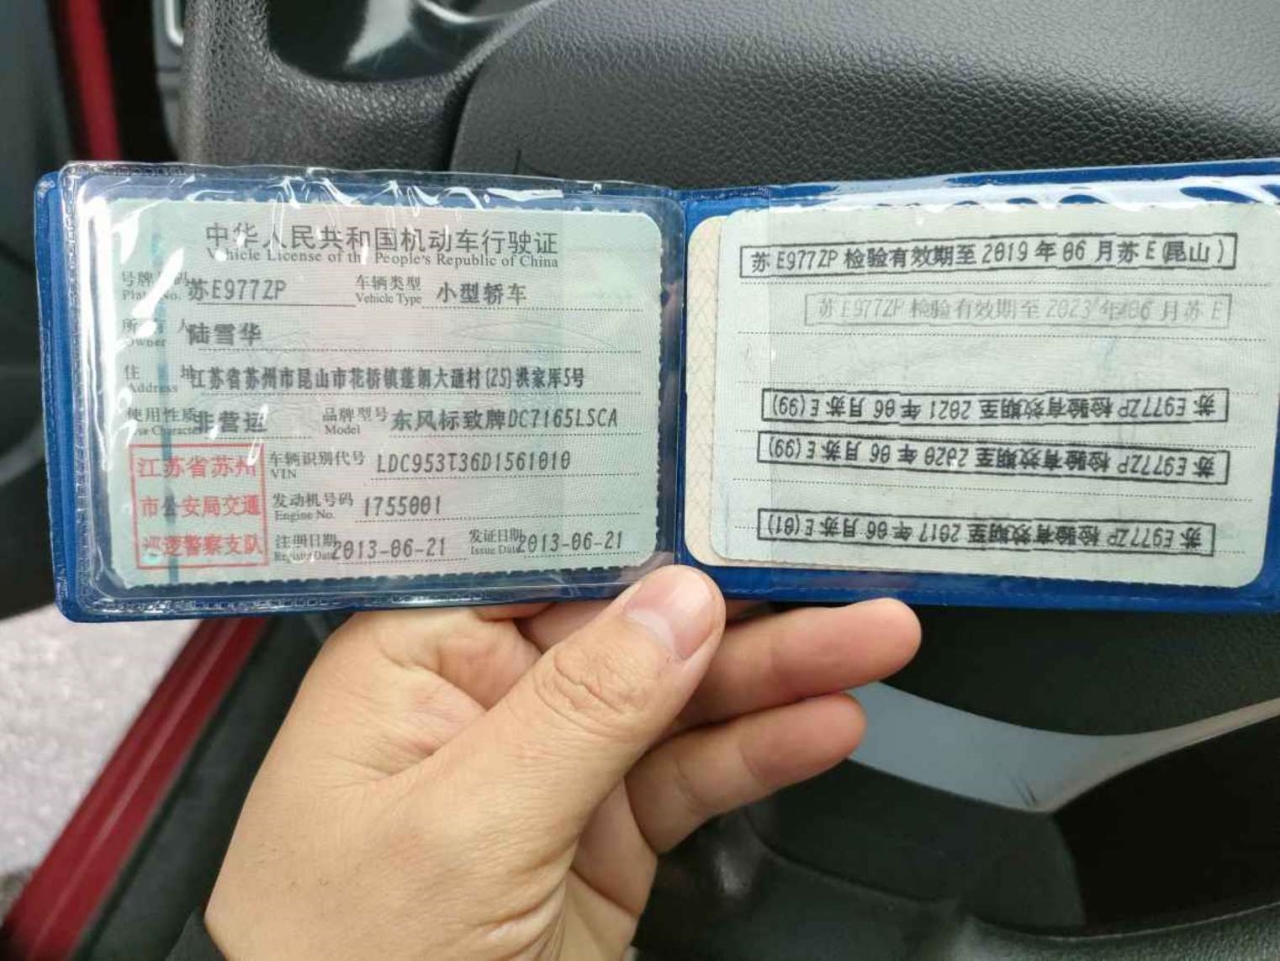 中华人民共和国机动车行驶证
Vehicle License of the People's Republic of China
号牌号码 苏E977ZP 车辆类型 小型轿车
Plate No. Vehicle Type
所有人 陆雪华
Owner
住址 江苏省苏州市昆山市花桥镇蓬朗大通村(25)洪家厍5号
Address
使用性质 非营运 品牌型号 东风标致牌DC7165LSCA
Use Character Model
江苏省苏州 车辆识别代号 LDC953T36D1561010
VIN
市公安局交通 发动机号码 1755001
Engine No.
巡逻警察支队 注册日期 2013-06-21 发证日期 2013-06-21
Register Date Issue Date
苏E977ZP 检验有效期至 2019 年 06 月苏 E (昆山)
苏E977ZP 检验有效期至 2023 年 06 月苏 E
苏E977ZP 检验有效期至 2021 年 06 月苏 E (99)
苏E977ZP 检验有效期至 2020 年 06 月苏 E (99)
苏E977ZP 检验有效期至 2017 年 06 月苏 E (01)